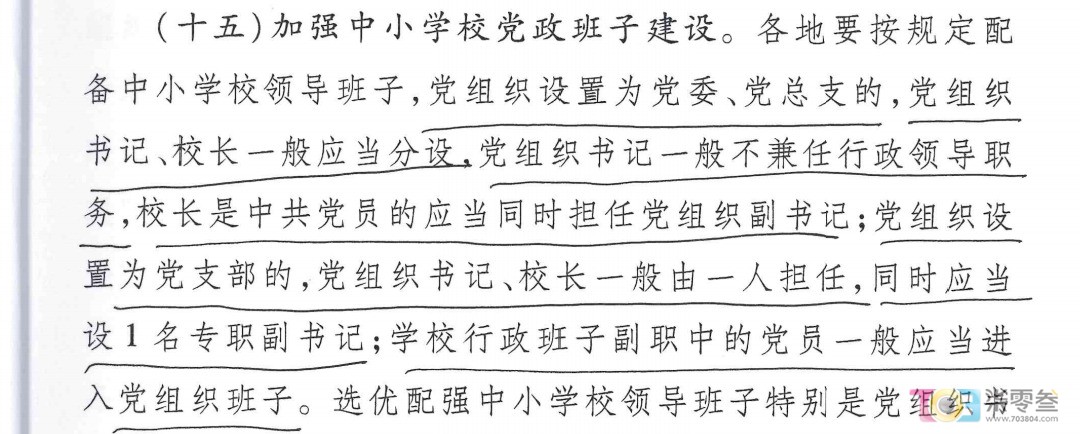 (十五)加强中小学校党政班子建设。各地要按规定配
备中小学校领导班子,党组织设置为党委、党总支的,党组织
书记、校长一般应当分设,党组织书记一般不兼任行政领导职
务,校长是中共党员的应当同时担任党组织副书记;党组织设
置为党支部的,党组织书记、校长一般由一人担任,同时应当
设1名专职副书记;学校行政班子副职中的党员一般应当进
入党组织班子。选优配强中小学校领导班子特别是党组织书
零叁
www.703804.com